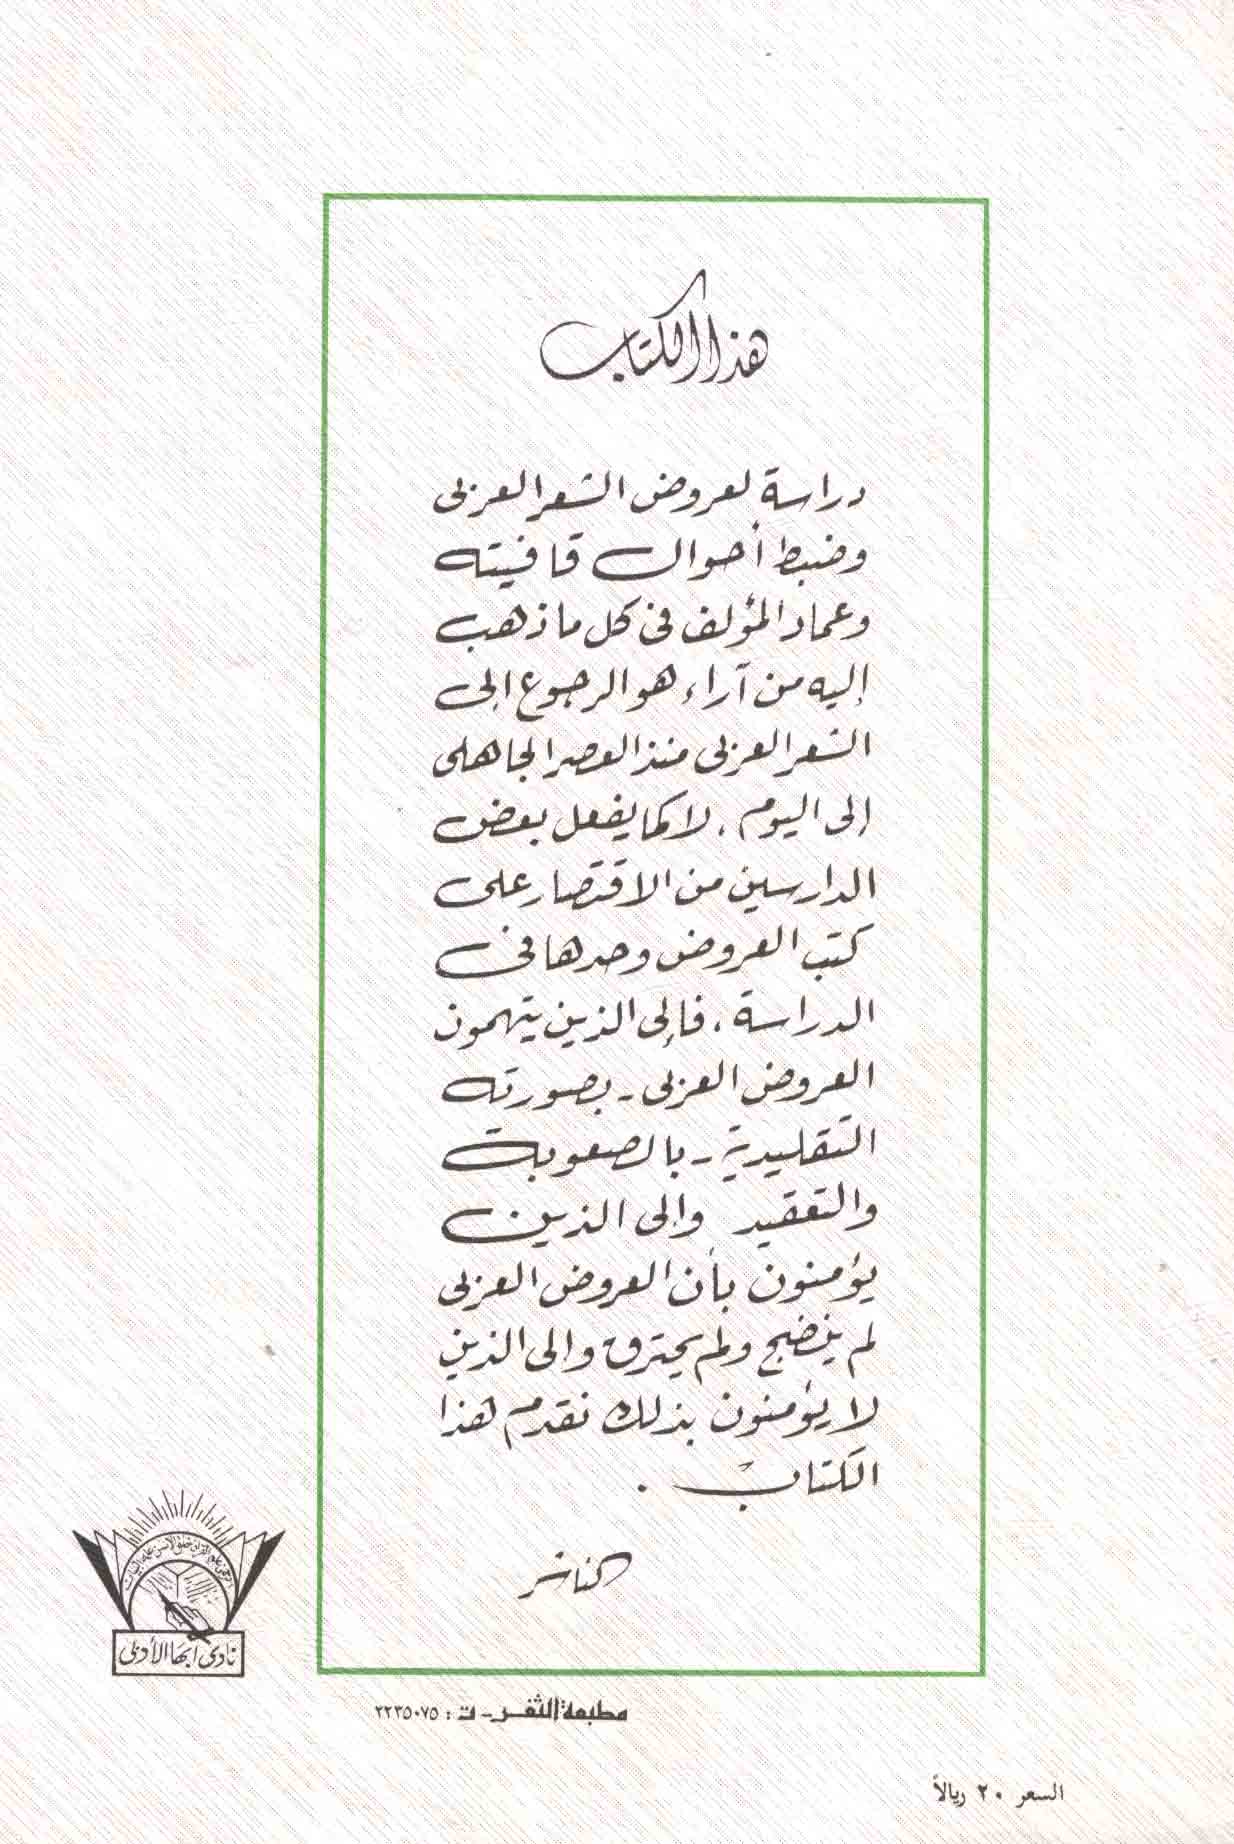 هذا الكتاب
دراسة لعروض الشعر العربى
وضبط أحوال قافيته
وعماد المؤلف فى كل ما ذهب
إليه من آراء هو الرجوع إلى
الشعر العربى منذ العصر الجاهلى
إلى اليوم ، لا كما يفعل بعض
الدارسين من الاقتصار على
كتب العروض وحدها فى
الدراسة ، فإلى الذين يتهمون
العروض العربى - بصورته
التقليدية - بالصعوبة
والتعقيد وإلى الذين
يؤمنون بأن العروض العربى
لم ينضج ولم يحترق وإلى الذين
لا يؤمنون بذلك نقدم هذا
الكتاب .
الناشر
نادى أبها الأدبى
مطبعة الثغر - ت : ٢٢٣٥٠٧٥
السعر ٢٠ ريالاً